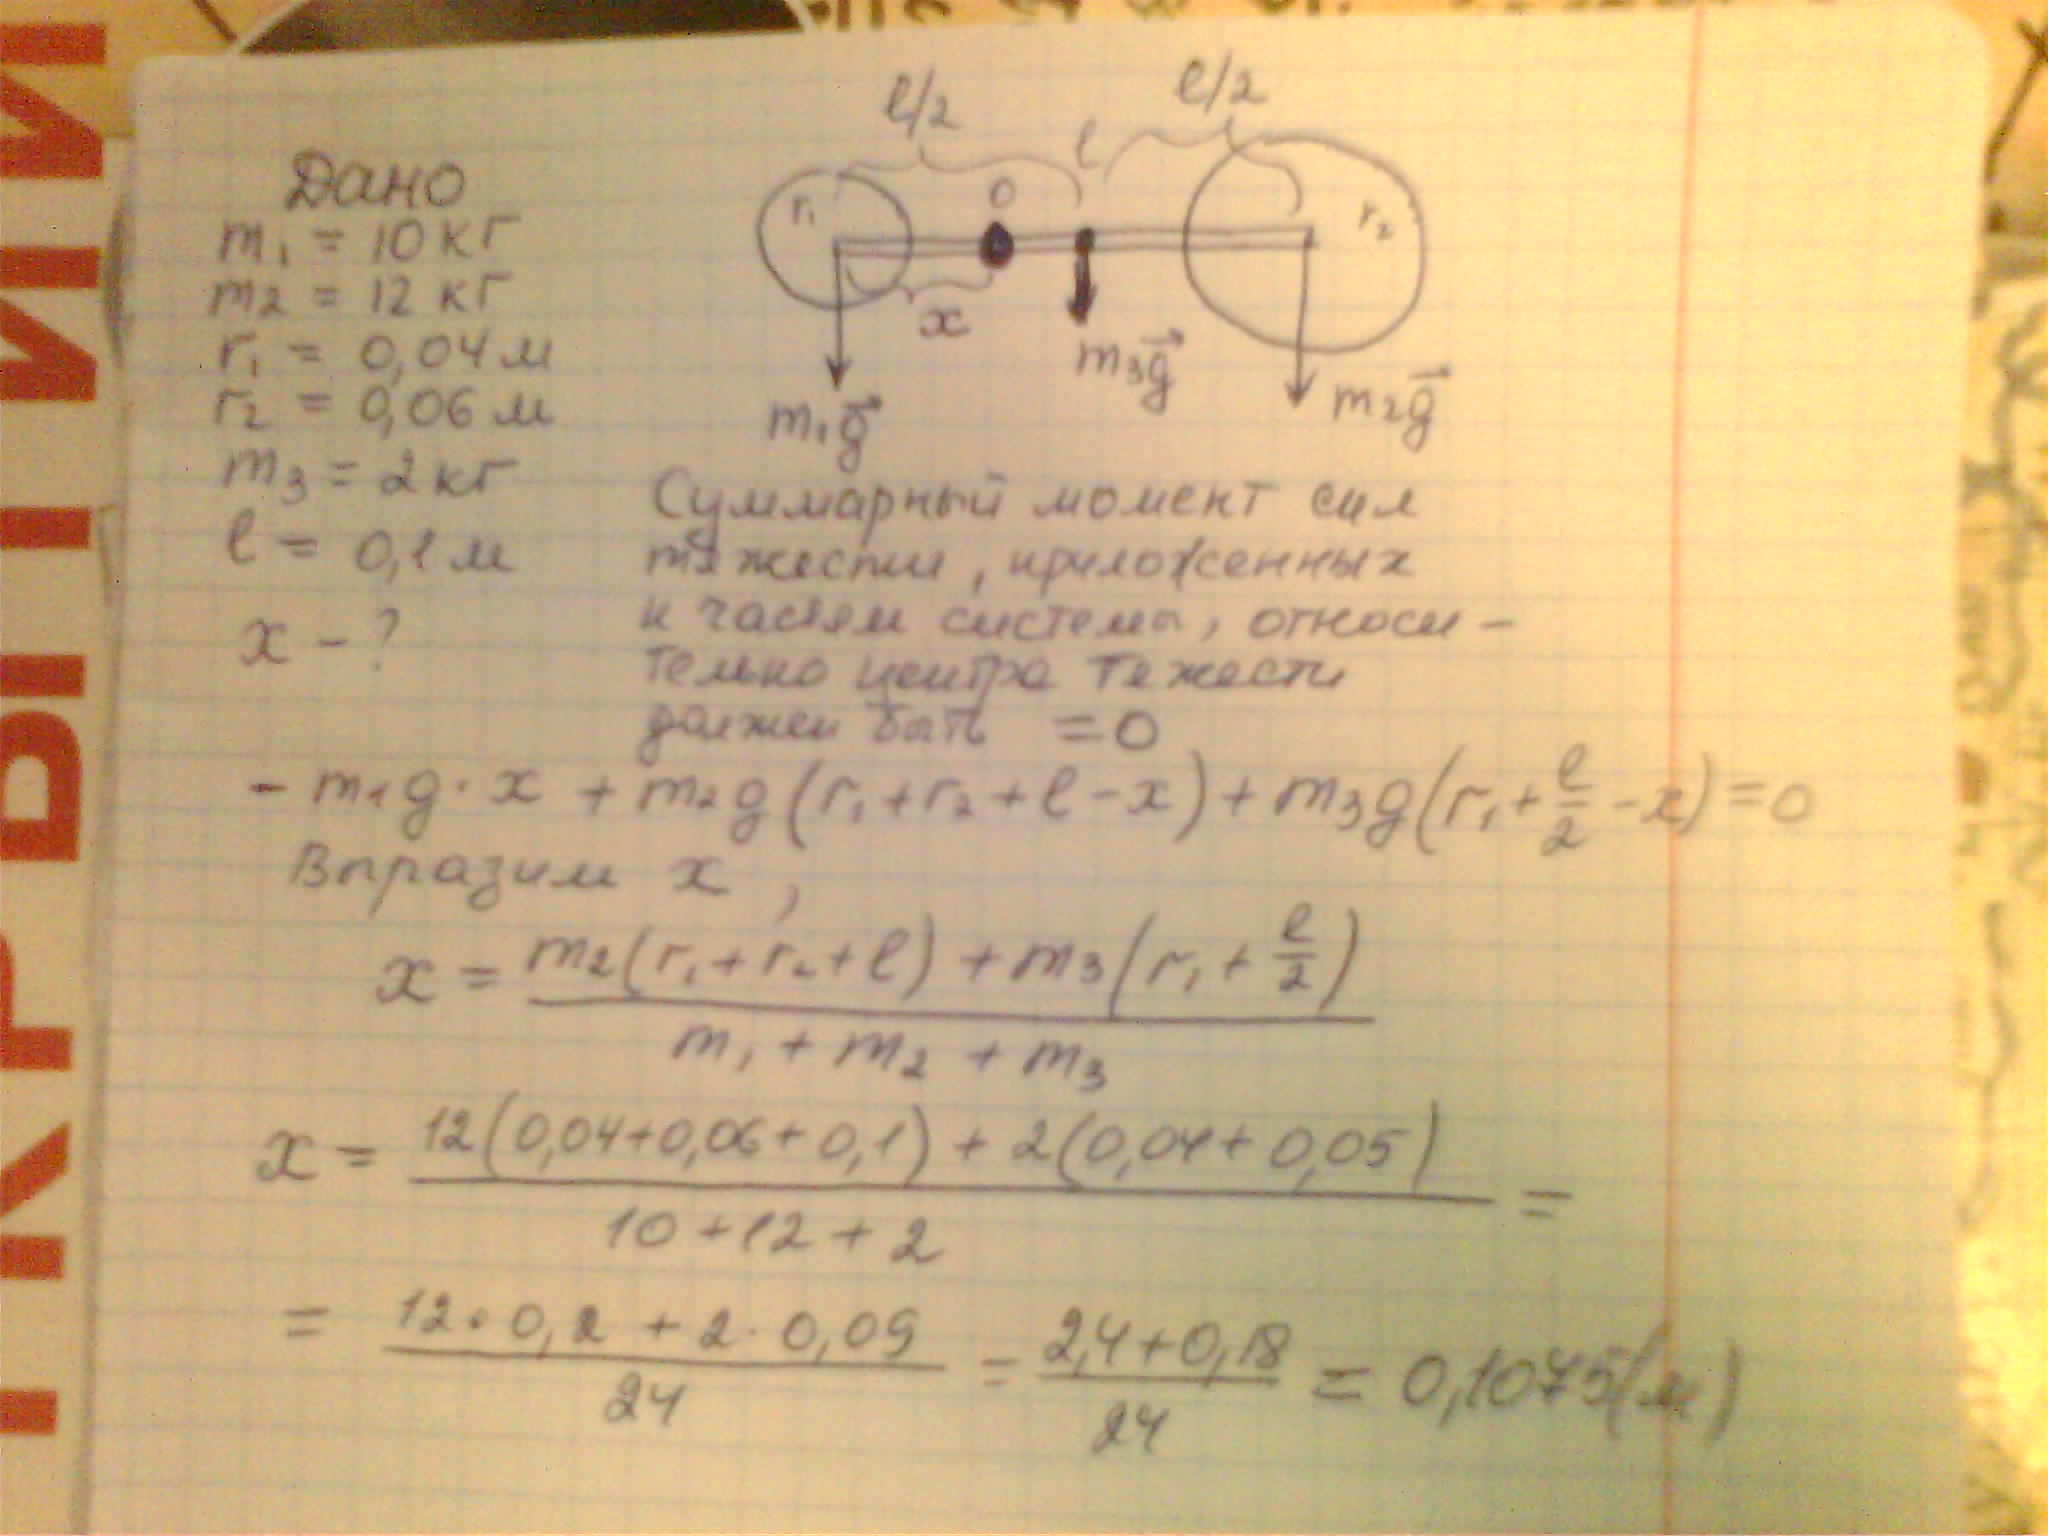 l/2 l/2
l
r₁ O r₂
x
m₁g⃗ m₃g⃗ m₂g⃗
Дано
m₁ = 10 кг
m₂ = 12 кг
r₁ = 0,04 м
r₂ = 0,06 м
m₃ = 2 кг
l = 0,1 м
x - ?
Суммарный момент сил
тяжести, приложенных
к частям системы, относи -
тельно центра тяжести
должен быть = 0
- m₁g · x + m₂g (r₁ + r₂ + l - x) + m₃g (r₁ + l/2 - x) = 0
Выразим x ,
x = (m₂(r₁ + r₂ + l) + m₃(r₁ + l/2)) / (m₁ + m₂ + m₃)
x = (12(0,04+0,06+0,1) + 2(0,04+0,05)) / (10 + 12 + 2) =
= (12 · 0,2 + 2 · 0,09) / 24 = (2,4+0,18) / 24 = 0,1075(м)